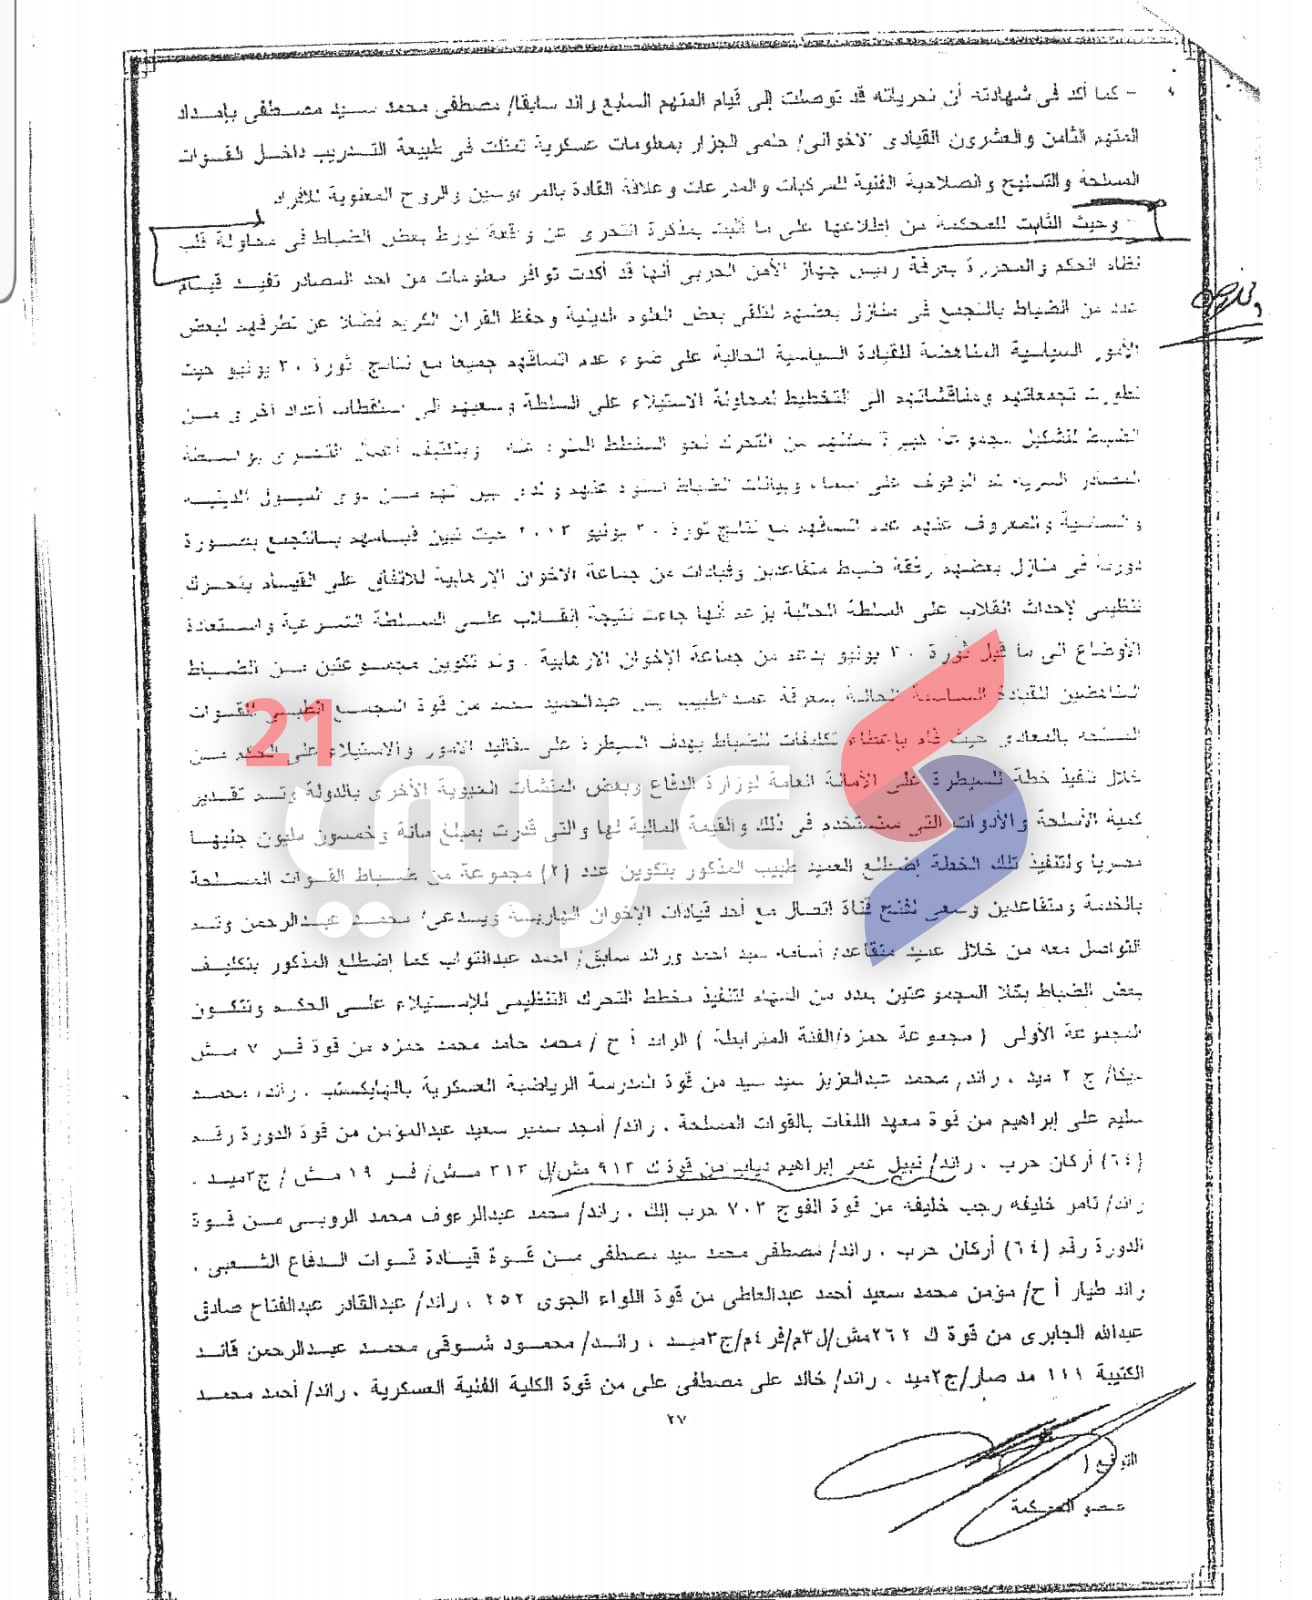 - كما أكد فى شهادته أن تحرياته قد توصلت إلى قيام المتهم السابع رائد سابقا/ مصطفى محمد سيد مصطفى بإمداد
المتهم الثامن والعشرون القيادى الاخوانى/ حلمى الجزار بمعلومات عسكرية تمثلت فى طبيعة التدريب داخل القوات
المسلحة والتسليح والصلاحية الفنية للمركبات والمدرعات وعلاقة القادة بالمرءوسين والروح المعنوية للأفراد
- وحيث الثابت للمحكمة من إطلاعها على ما أثبت بمذكرة التحرى عن واقعة تورط بعض الضباط فى محاولة قلب
نظام الحكم والمحررة بمعرفة رئيس جهاز الأمن الحربى أنها قد أكدت توافر معلومات من احد المصادر تفيد قيام
عدد من الضباط بالتجمع فى منازل بعضهم لتلقى بعض العلوم الدينية وحفظ القرآن الكريم فضلا عن تطرقهم لبعض
الأمور السياسية المناهضة للقيادة السياسية الحالية على ضوء عدم اتساقهم جميعا مع نتائج ثورة ٣٠ يونيو حيث
تطورت تجمعاتهم ومناقشاتهم الى التخطيط لمحاولة الاستيلاء على السلطة وسعيهم الى استقطاب أعداد أخرى من
الضباط لتشكيل مجموعات كبيرة تمكنهم من التحرك نحو المخطط المنوه عنه وبتكثيف أعمال التحرى بواسطة
المصادر السرية تم الوقوف على أسماء وبيانات الضباط المنوه عنهم والذى تبين أنهم من ذوى الميول الدينية
والسياسية والمعروف عنهم عدم اتساقهم مع نتائج ثورة ٣٠ يونيو ٢٠١٣ حيث تبين قيامهم بالتجمع بصورة
دورية فى منازل بعضهم رفقة ضباط متقاعدين وقيادات من جماعة الاخوان الإرهابية للاتفاق على القيام بتحرك
تنظيمى لإحداث انقلاب على السلطة الحالية بزعم أنها جاءت نتيجة إنقلاب على السلطة الشرعية واستعادة
الأوضاع الى ما قبل ثورة ٣٠ يونيو بدعم من جماعة الإخوان الارهابية . وتم تكوين مجموعتين من الضباط
المناهضين للقيادة السياسية الحالية بمعرفة عميد طبيب عبدالحميد محمد من قوة المجمع الطبى للقوات
المسلحة بالمعادى حيث قام بإعطاء تكليفات للضباط بهدف السيطرة على مقاليد الامور والاستيلاء على الحكم من
خلال تنفيذ خطة للسيطرة على الأمانة العامة لوزارة الدفاع وبعض المنشآت الحيوية الأخرى بالدولة وتم تقدير
كمية الأسلحة والأدوات التى ستستخدم فى ذلك والقيمة المالية لها والتى قدرت بمبلغ مائة وخمسون مليون جنيها
مصريا ولتنفيذ تلك الخطة إضطلع العميد طبيب المذكور بتكوين عدد (٢) مجموعة من ضباط القوات المسلحة
بالخدمة ومتقاعدين وسعى لفتح قناة إتصال مع أحد قيادات الإخوان الهاربة ويدعى/ محمد عبدالرحمن وتم
التواصل معه من خلال عميد متقاعد/ أسامه سيد احمد ورائد سابق/ احمد عبدالتواب كما إضطلع المذكور بتكليف
بعض الضباط بكلا المجموعتين بعدد من المهام لتنفيذ مخطط التحرك التنظيمى للإستيلاء على الحكم وتتكون
المجموعة الأولى ( مجموعة حمزه/الفئة المترابطة ) الرائد أ ح / محمد حامد محمد حمزه من قوة فر ٧ مش
ميكا/ ج ٢ ميد . رائد/ محمد عبدالعزيز سيد سيد من قوة المدرسة الرياضية العسكرية بالهايكستب . رائد/ محمد
سليم على إبراهيم من قوة معهد اللغات بالقوات المسلحة . رائد/ أمجد سمير سعيد عبدالمؤمن من قوة الدورة رقم
(٦٤) أركان حرب . رائد/ نبيل عمر إبراهيم دياب من قوة ك ٩١٣ مش/ل ٣١٣ مش/ فر ١٩ مش / ج٣ميد .
رائد/ تامر خليفه رجب خليفه من قوة الفوج ٧٠٣ حرب إلك . رائد/ محمد عبدالرءوف محمد الروبى من قوة
الدورة رقم (٦٤) أركان حرب . رائد/ مصطفى محمد سيد مصطفى من قوة قيادة قوات الدفاع الشعبى .
رائد طيار أ ح/ مؤمن محمد سعيد أحمد عبدالعاطى من قوة اللواء الجوى ٢٥٢ . رائد/ عبدالقادر عبدالفتاح صادق
عبدالله الجابرى من قوة ك ٢٦٢مش/ل٣م/فر٤م/ج٣ميد . رائد/ محمود شوقى محمد عبدالرحمن قائد
الكتيبة ١٤١ مد صار/ج٢ميد . رائد/ خالد على مصطفى على من قوة الكلية الفنية العسكرية . رائد/ أحمد محمد
٢٧
التوقيع (
عضو المحكمة
عربي
21